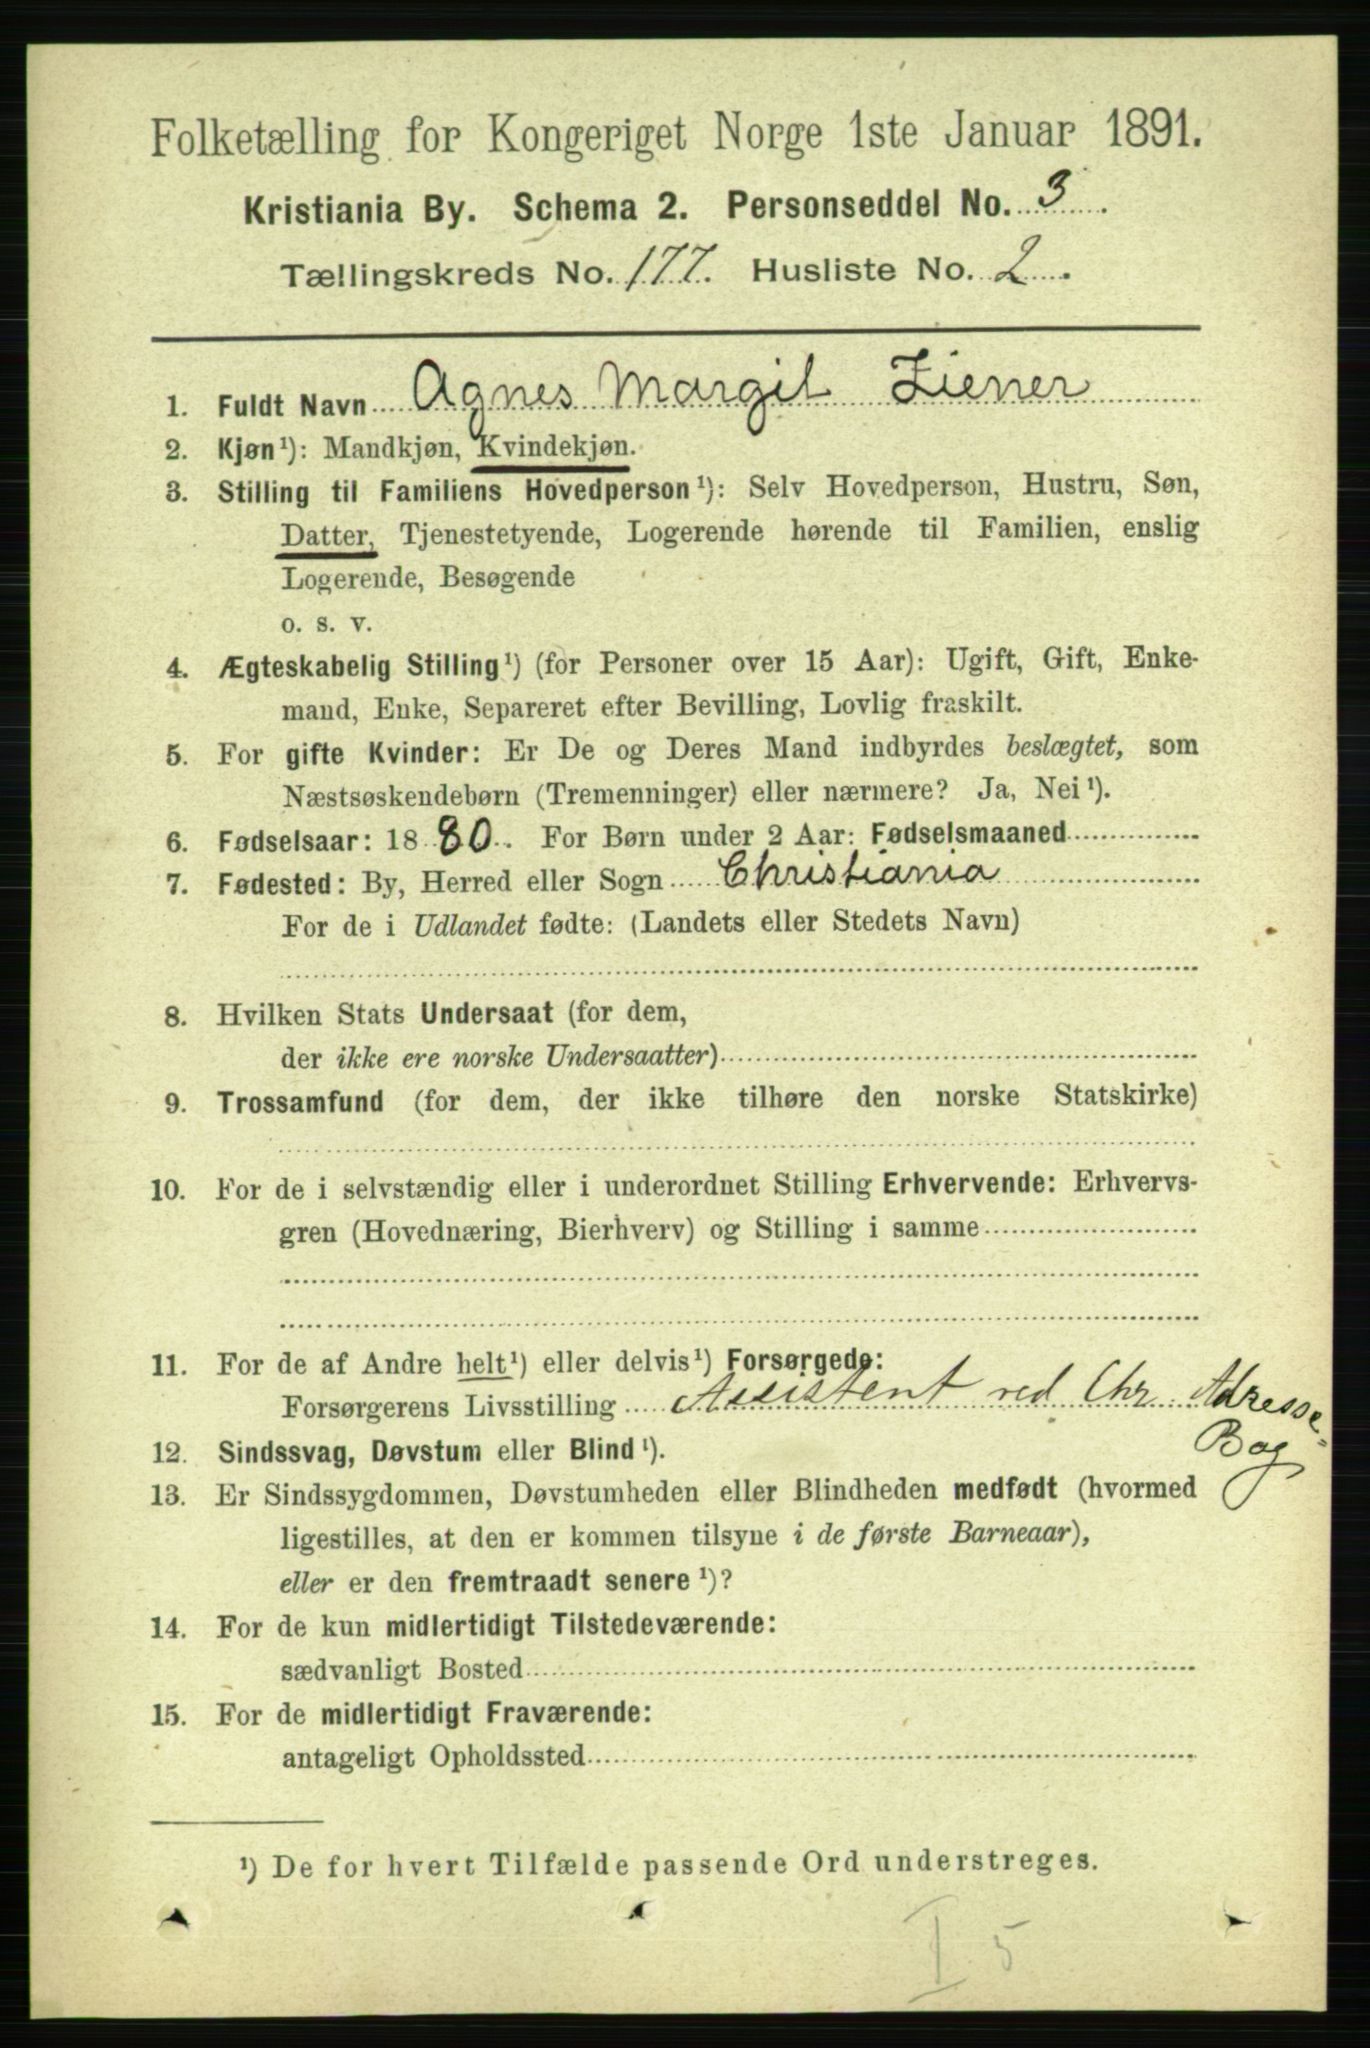 Folketælling for Kongeriget Norge 1ste Januar 1891.
Kristiania By. Schema 2. Personseddel No. 3
Tællingskreds No. 177. Husliste No. 2
1. Fuldt Navn Agnes Margit Ziener
2. Kjøn¹): Mandkjøn, Kvindekjøn.
3. Stilling til Familiens Hovedperson¹): Selv Hovedperson, Hustru, Søn,
Datter, Tjenestetyende, Logerende hørende til Familien, enslig
Logerende, Besøgende
o. s. v.
4. Ægteskabelig Stilling¹) (for Personer over 15 Aar): Ugift, Gift, Enke-
mand, Enke, Separeret efter Bevilling, Lovlig fraskilt.
5. For gifte Kvinder: Er De og Deres Mand indbyrdes beslægtet, som
Næstsøskendebørn (Tremenninger) eller nærmere? Ja, Nei¹).
6. Fødselsaar: 1880. For Børn under 2 Aar: Fødselsmaaned
7. Fødested: By, Herred eller Sogn Christiania
For de i Udlandet fødte: (Landets eller Stedets Navn)
8. Hvilken Stats Undersaat (for dem,
der ikke ere norske Undersaatter)
9. Trossamfund (for dem, der ikke tilhøre den norske Statskirke)
10. For de i selvstændig eller i underordnet Stilling Erhvervende: Erhvervs-
gren (Hovednæring, Bierhverv) og Stilling i samme
11. For de af Andre helt¹) eller delvis¹) Forsørgede:
Forsørgerens Livsstilling Assistent ved Chr. Adresse-
Bog
12. Sindssvag, Døvstum eller Blind¹).
13. Er Sindssygdommen, Døvstumheden eller Blindheden medfødt (hvormed
ligestilles, at den er kommen tilsyne i de første Barneaar),
eller er den fremtraadt senere¹)?
14. For de kun midlertidigt Tilstedeværende:
sædvanligt Bosted
15. For de midlertidigt Fraværende:
antageligt Opholdssted
¹) De for hvert Tilfælde passende Ord understreges.
I 5